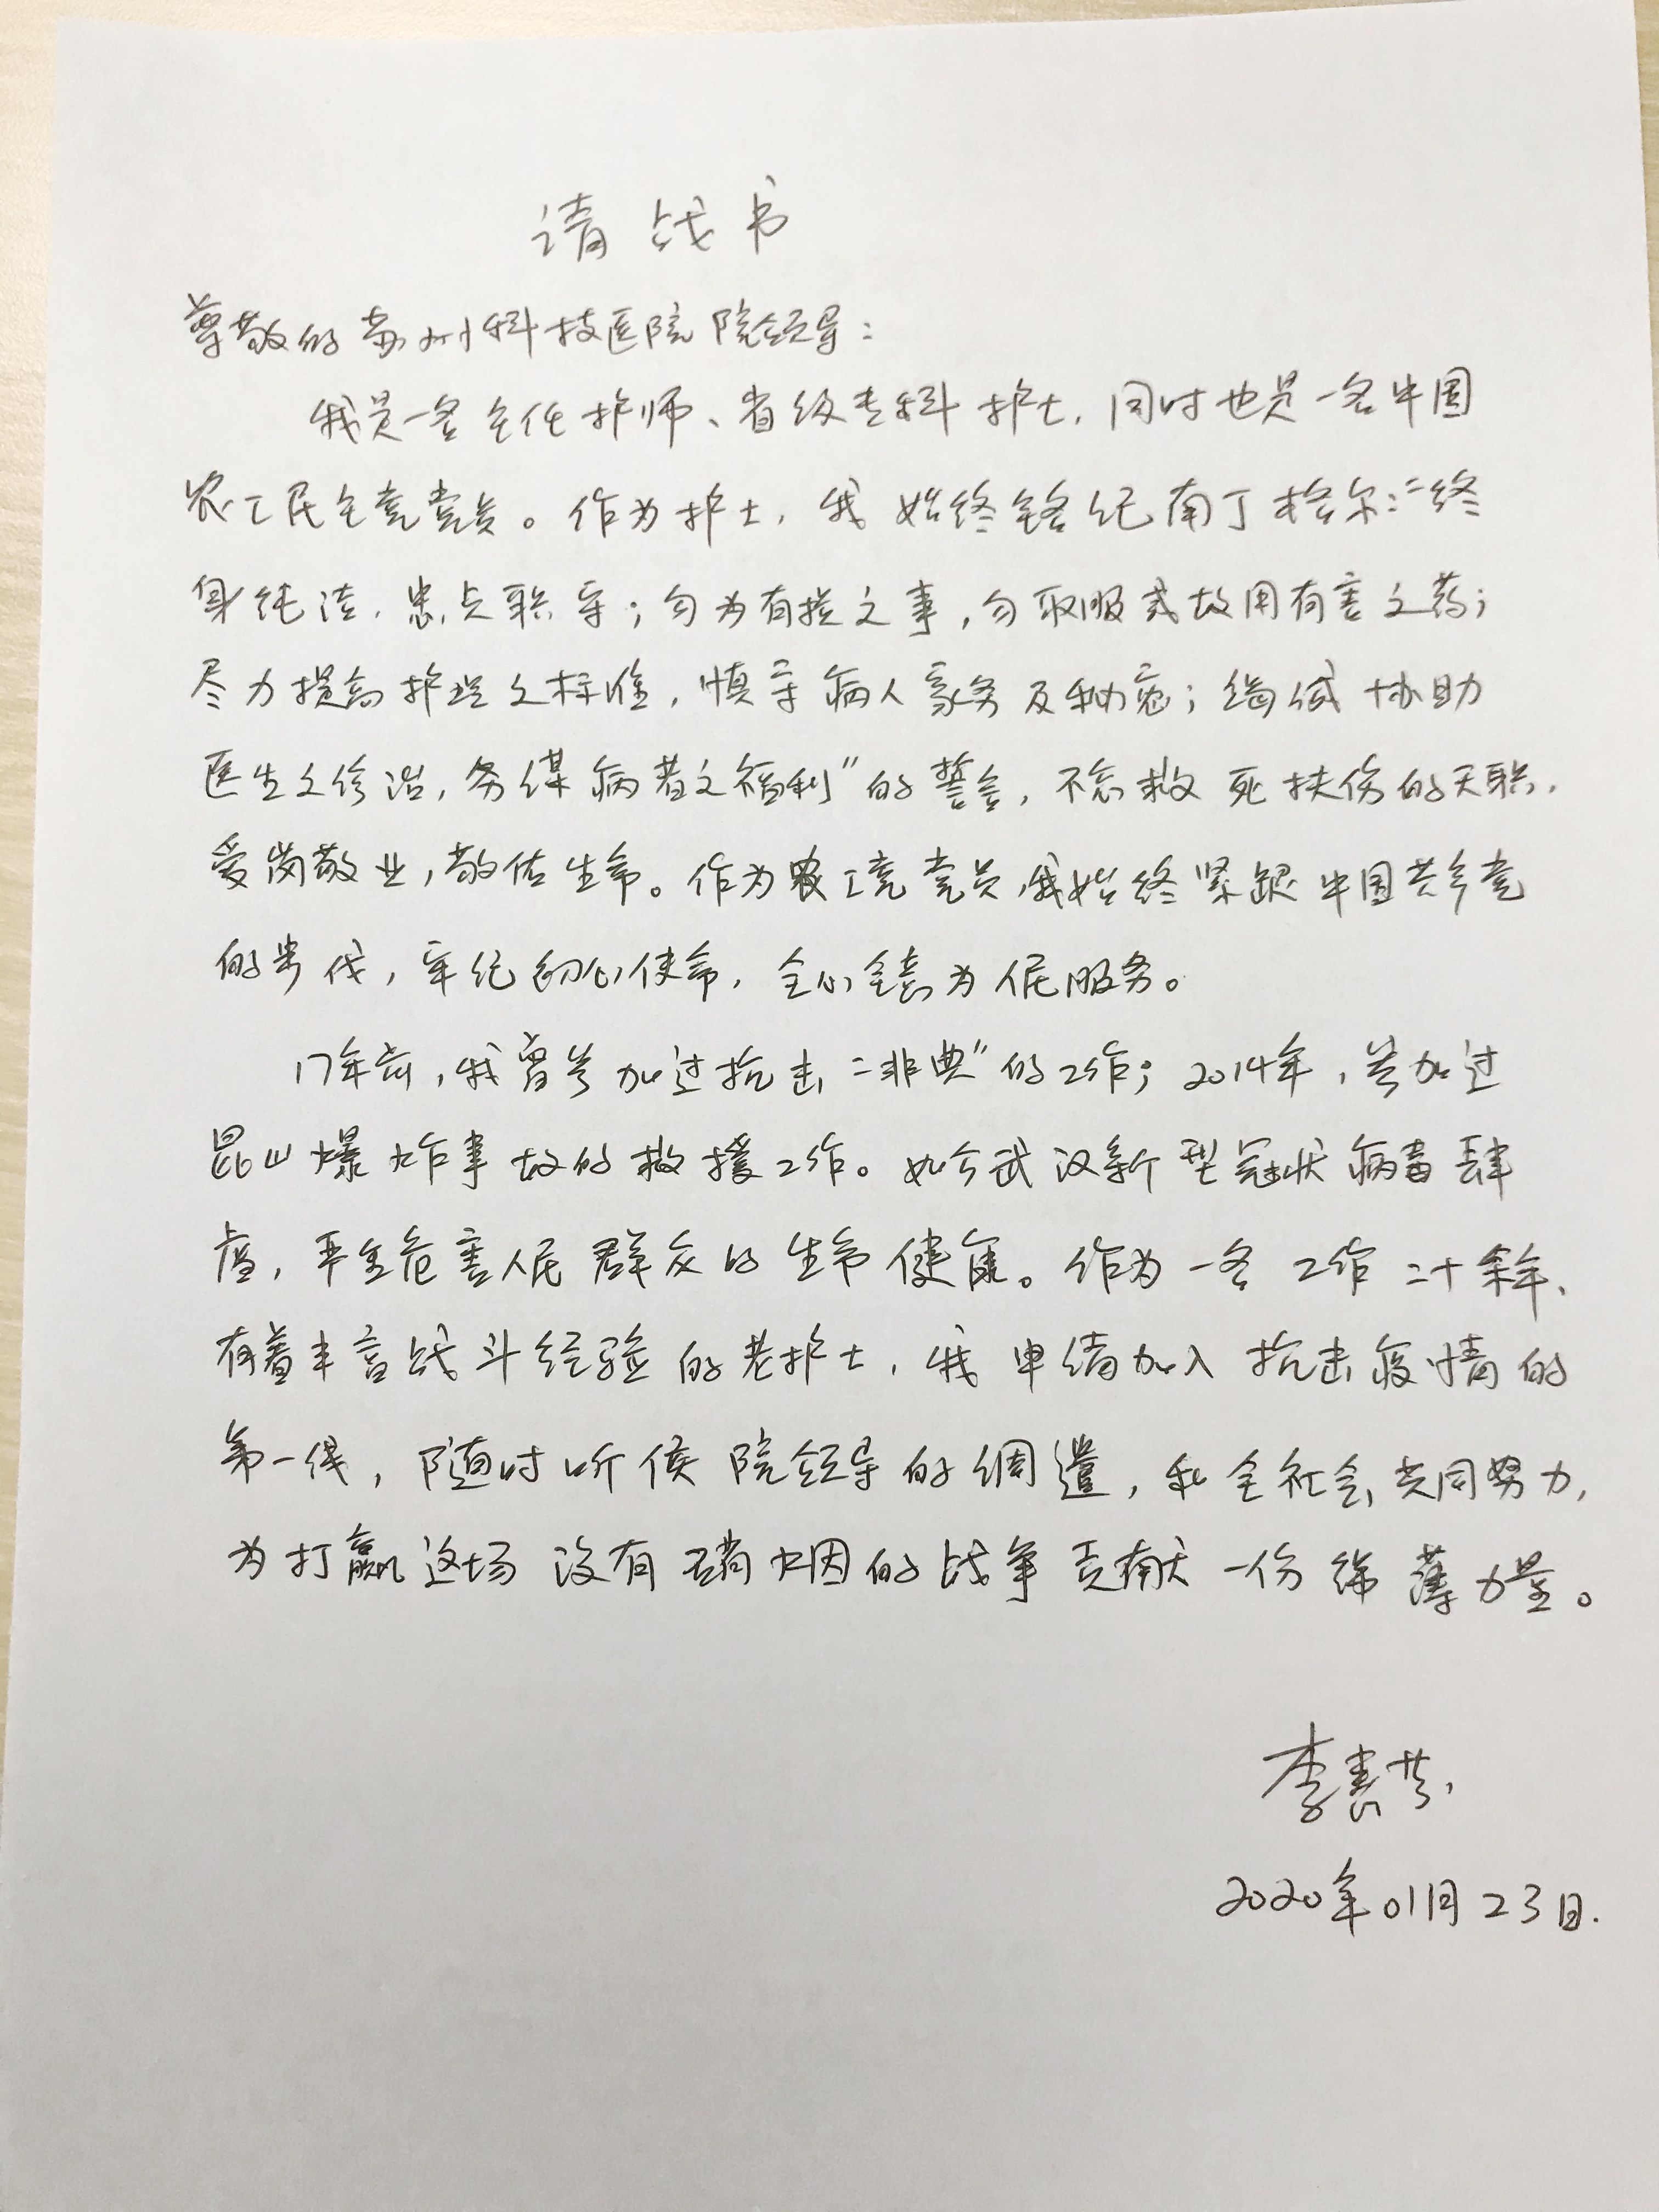 请战书
尊敬的苏州科技医院院领导：
我是一名主任护师、省级专科护士，同时也是一名中国
农工民主党党员。作为护士，我始终铭记南丁格尔："终
身纯洁，忠贞职守；勿为有损之事，勿取服或故用有害之药；
尽力提高护理之标准，慎守病人家务及秘密；竭诚协助
医生之诊治，务谋病者之福利"的誓言，不忘救死扶伤的天职，
爱岗敬业，敬佑生命。作为农工党党员，我始终紧跟中国共产党
的步伐，牢记初心使命，全心全意为人民服务。
17年前，我曾参加过抗击"非典"的工作；2014年，参加过
昆山爆炸事故的救援工作。如今武汉新型冠状病毒肆
虐，严重危害人民群众的生命健康。作为一名工作二十余年、
有着丰富战斗经验的老护士，我申请加入抗击疫情的
第一线，随时听候院领导的调遣，和全社会共同努力，
为打赢这场没有硝烟的战争贡献一份绵薄力量。
李
2020年01月23日.